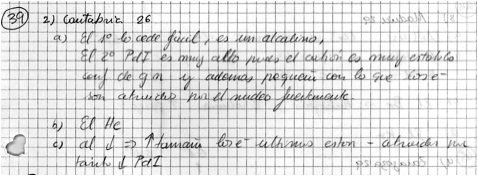 39 2) Cantabria 26
a) El 1º lo cede fácil, es un alcalino,
El 2º PdI es muy alto pues el catión es muy estable
conf de gn y además pequeño con lo que los e-
son atraidos por el nucleo fuertemente
b) El He
c) al ↓ ⇒ ↑ tamaño los e- ultimos estan - atraidos por
tanto ↓ PdI